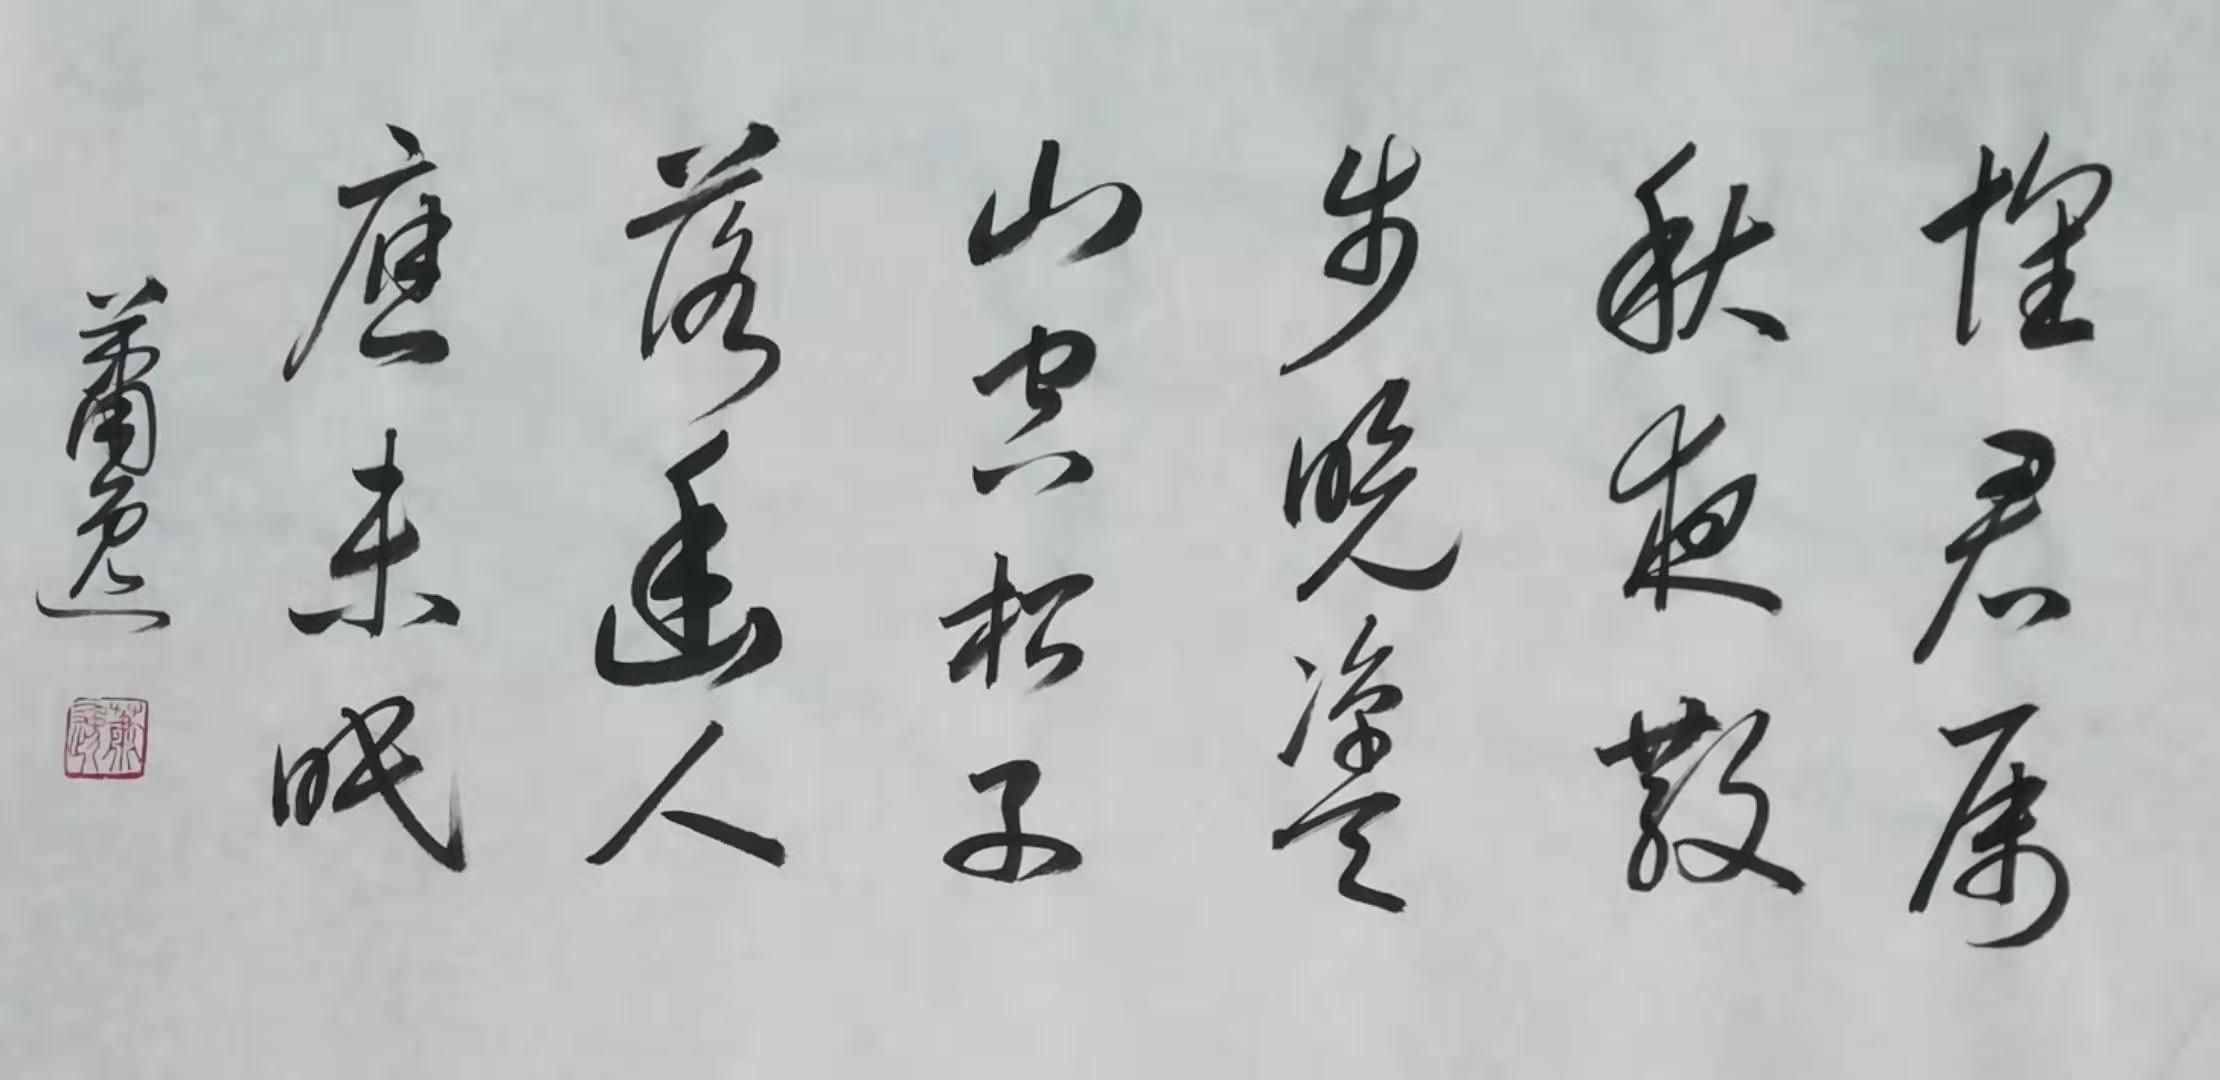 怀君属
秋夜散
步晚凉天
山空松子
落幽人
应未眠
萧逸